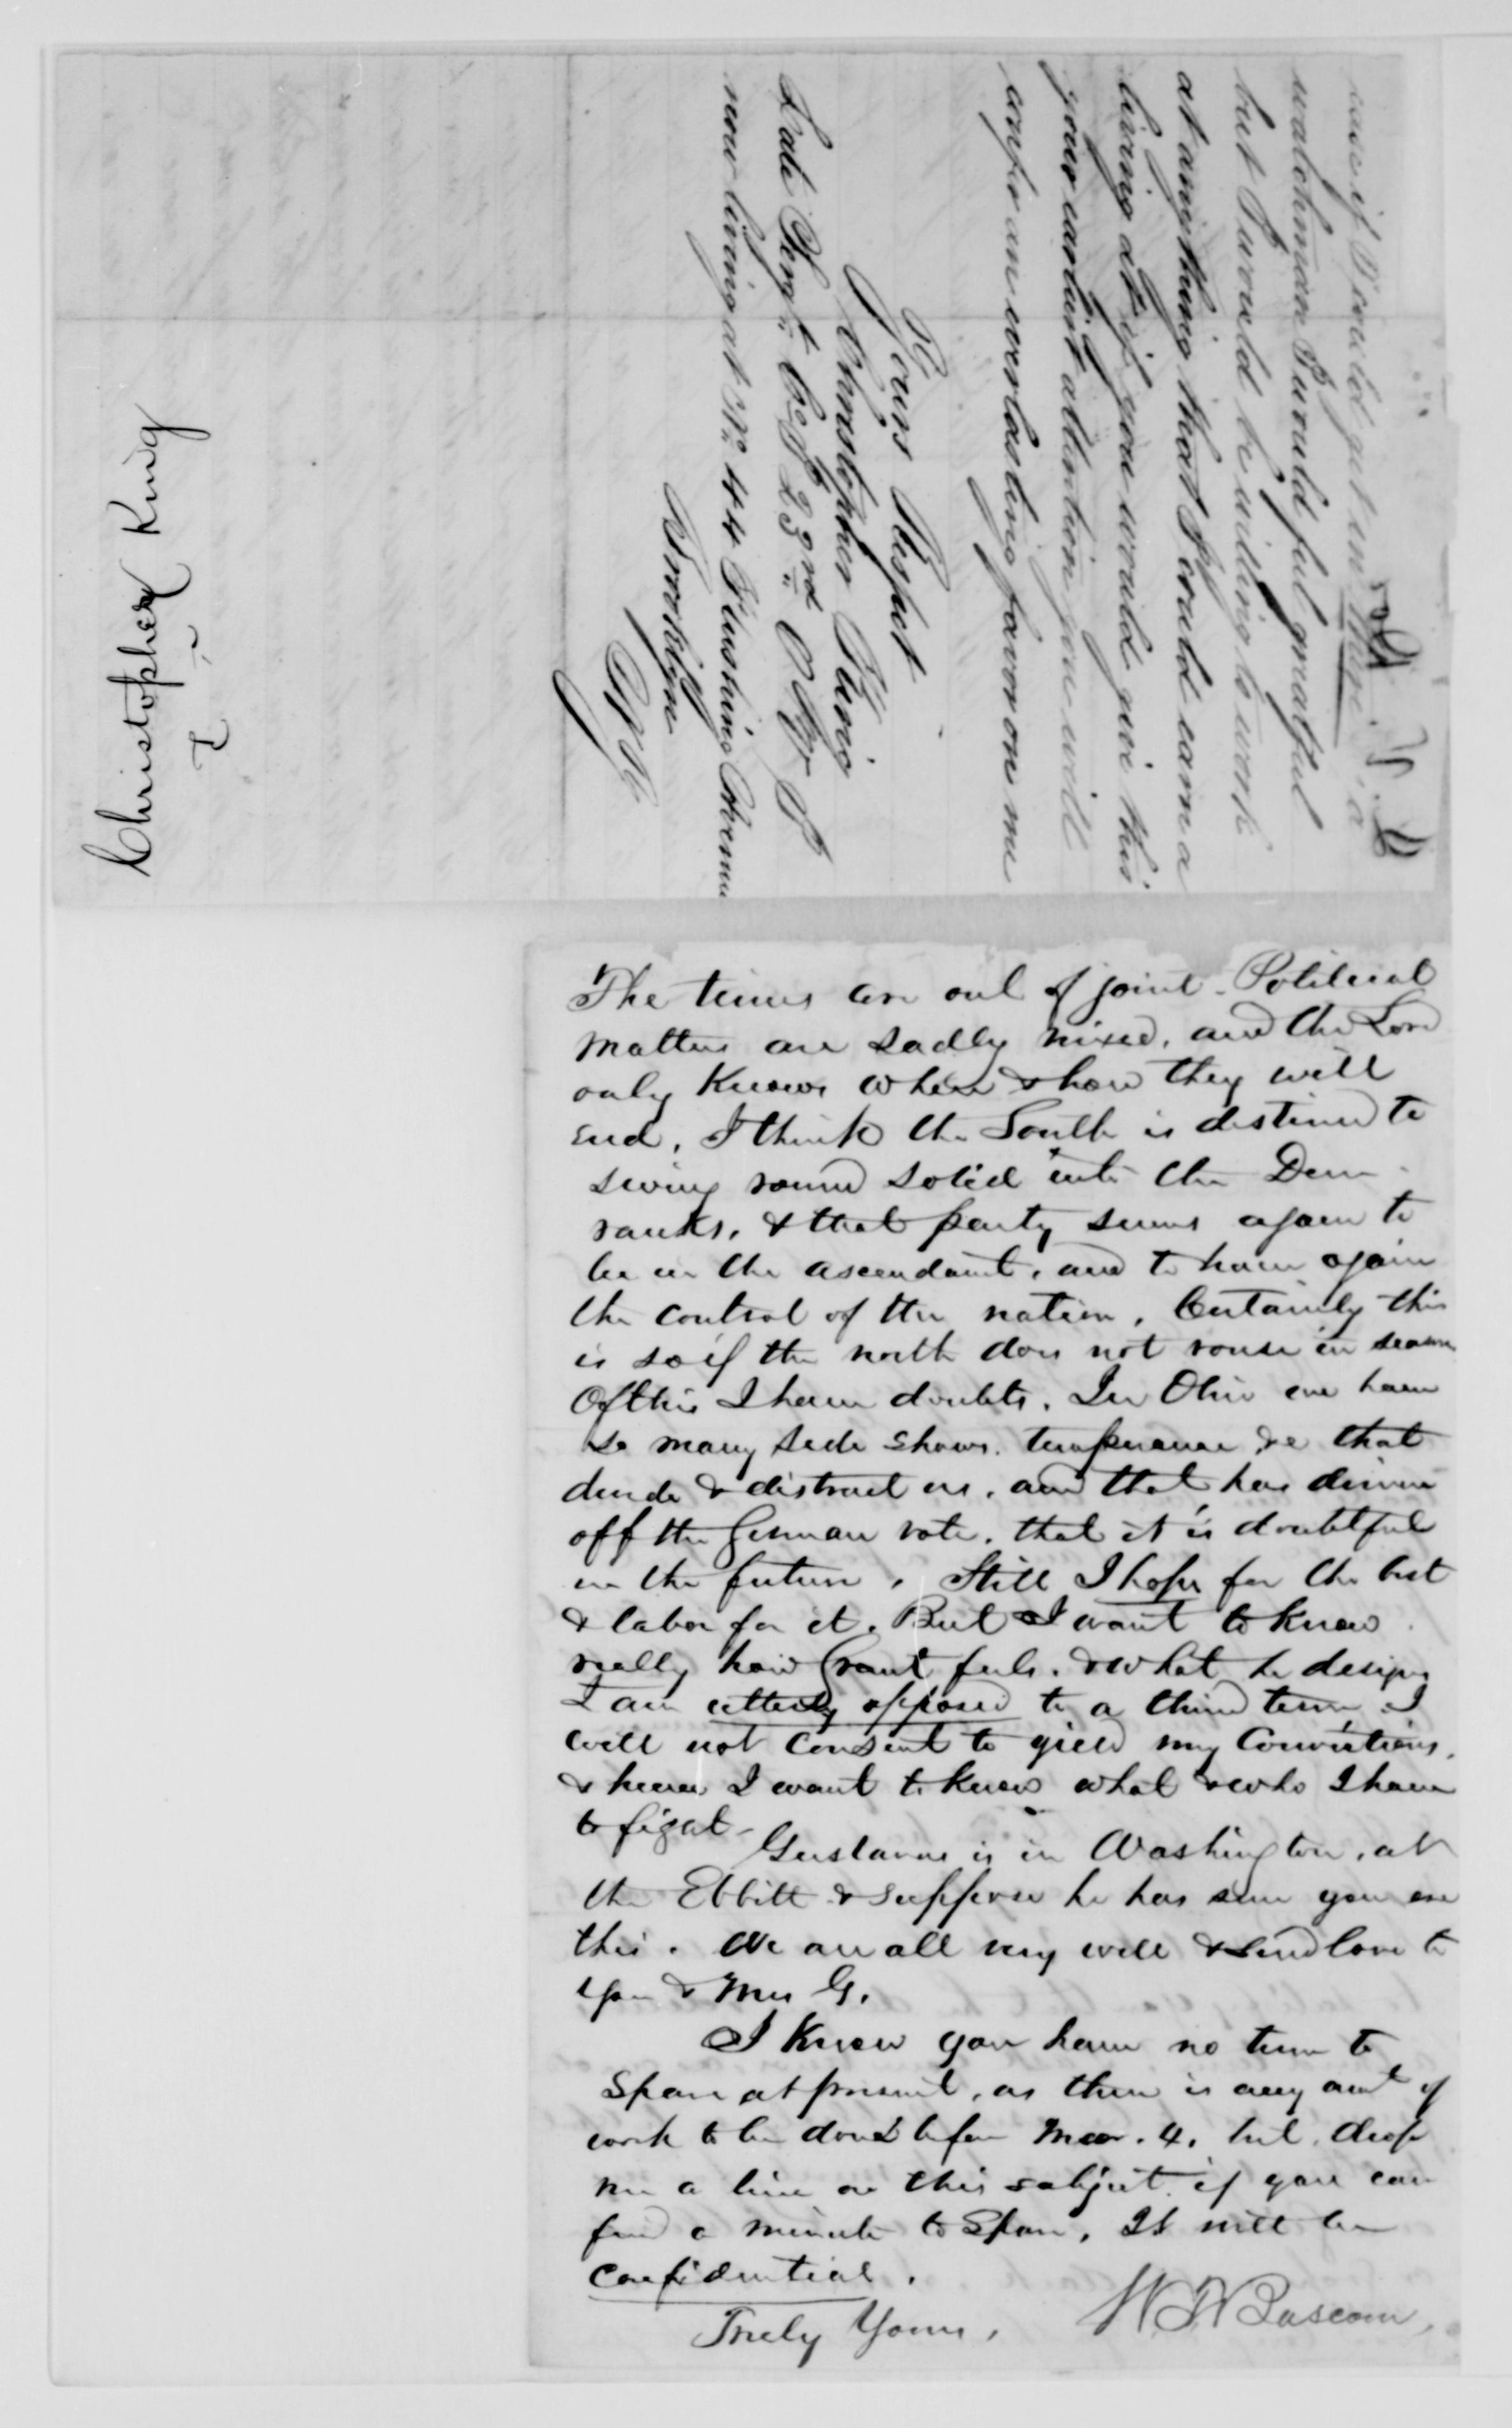 case if I could get in there, a
watchman I would feel grateful
but I would be willing to work
at anything that I could earn a
living at if you would give this
your earliest attention you will
confer an everlasting favor on me
Yours Respect
Christopher King
Late Sergt Co 23rd O V I
now living at No 44 Flushing Avenue
Brooklyn
N Y
Christopher King
The times are out of joint. Political
matters are sadly mixed, and the Lord
only knows when & how they will
end. I think the South is destined to
swing round solid into the Dem
ranks, & that party seems again to
be in the ascendant, and to have again
the control of the nation. Certainly this
is so if the north does not rouse in season
Of this I have doubts. In Ohio we have
so many side shows. temperance &c that
divide & distract us, and that has driven
off the German vote, that it is doubtful
in the future. Still I hope for the best
& labor for it. But I want to know
really how Grant feels. & what he designs
I am utterly opposed to a third term. I
will not consent to yield my convictions,
& hence I want to know what & who I have
to fight—
Gustavus is in Washington, at
the Ebbitt & suppose he has seen you ere
this. We are all very well & send love to
you & Mrs G.
I know you have no time to
spare at present, as there is any amt of
work to be done before Mar. 4. but drop
me a line on this subject if you can
find a minute to spare. It will be
confidential.
Truly Yours,
W T Bascom